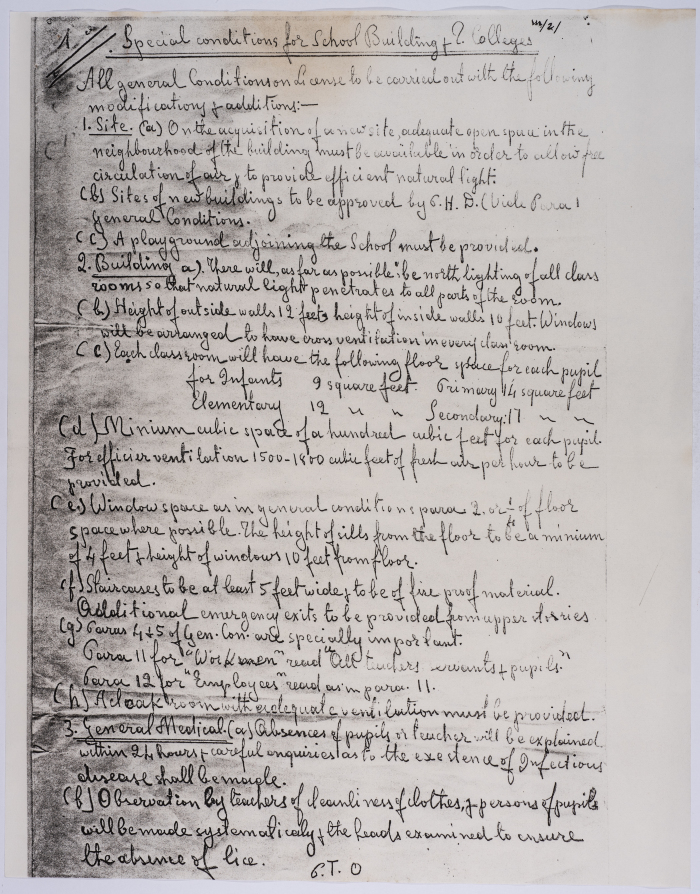 1
Special conditions for School Building & T. Colleges
All general Conditions on License to be carried out with the following
modifications & additions:—
1. Site. (a) On the acquisition of a new site, adequate open space in the
neighbourhood of the building must be available in order to allow free
circulation of air & to provide efficient natural light.
(b) Sites of new buildings to be approved by P.H.D. (Vide Para 1
General Conditions.
(c) A playground adjoining the School must be provided.
2. Building a). There will, as far as possible be north lighting of all class
rooms so that natural light penetrates to all parts of the room.
(b) Height of outside walls 12 feet, height of inside walls 10 feet. Windows
will be arranged to have cross ventilation in every class room.
(c) Each classroom will have the following floor space for each pupil
for Infants 9 square feet. Primary 14 square feet
Elementary 12 " " Secondary: 17 " "
(d) Minium cubic space of a hundred cubic feet for each pupil.
For efficier ventilation 1500-1800 cubic feet of fresh air per hour to be
provided.
(e.) Window space as in general conditions para 2. or of floor
space where possible. The height of sills from the floor to be a minium
of 4 feet & height of windows 10 feet from floor.
(f) Staircases to be at least 5 feet wide & to be of fire proof material.
Additional emergency exits to be provided from upper stories
(g) Paras 4 & 5 of Gen. Con. are specially important.
Para 11 for "Workmen" read "All teachers servants & pupils."
Para 12 for "Employees" read as in para. 11.
(h) A cloak room with adequate ventilation must be provided.
3. General Medical. (a) Absences of pupils or teacher will be explained
within 24 hours & careful enquiries as to the existence of Infectious
disease shall be made.
(b) Observation by teachers of cleanliness of clothes, & persons of pupils
will be made systematicaly & the heads examined to ensure
the absence of lice.
P.T.O